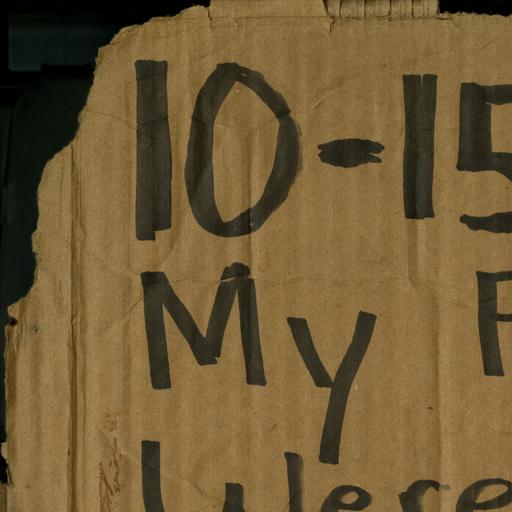 10-15
My P
Were